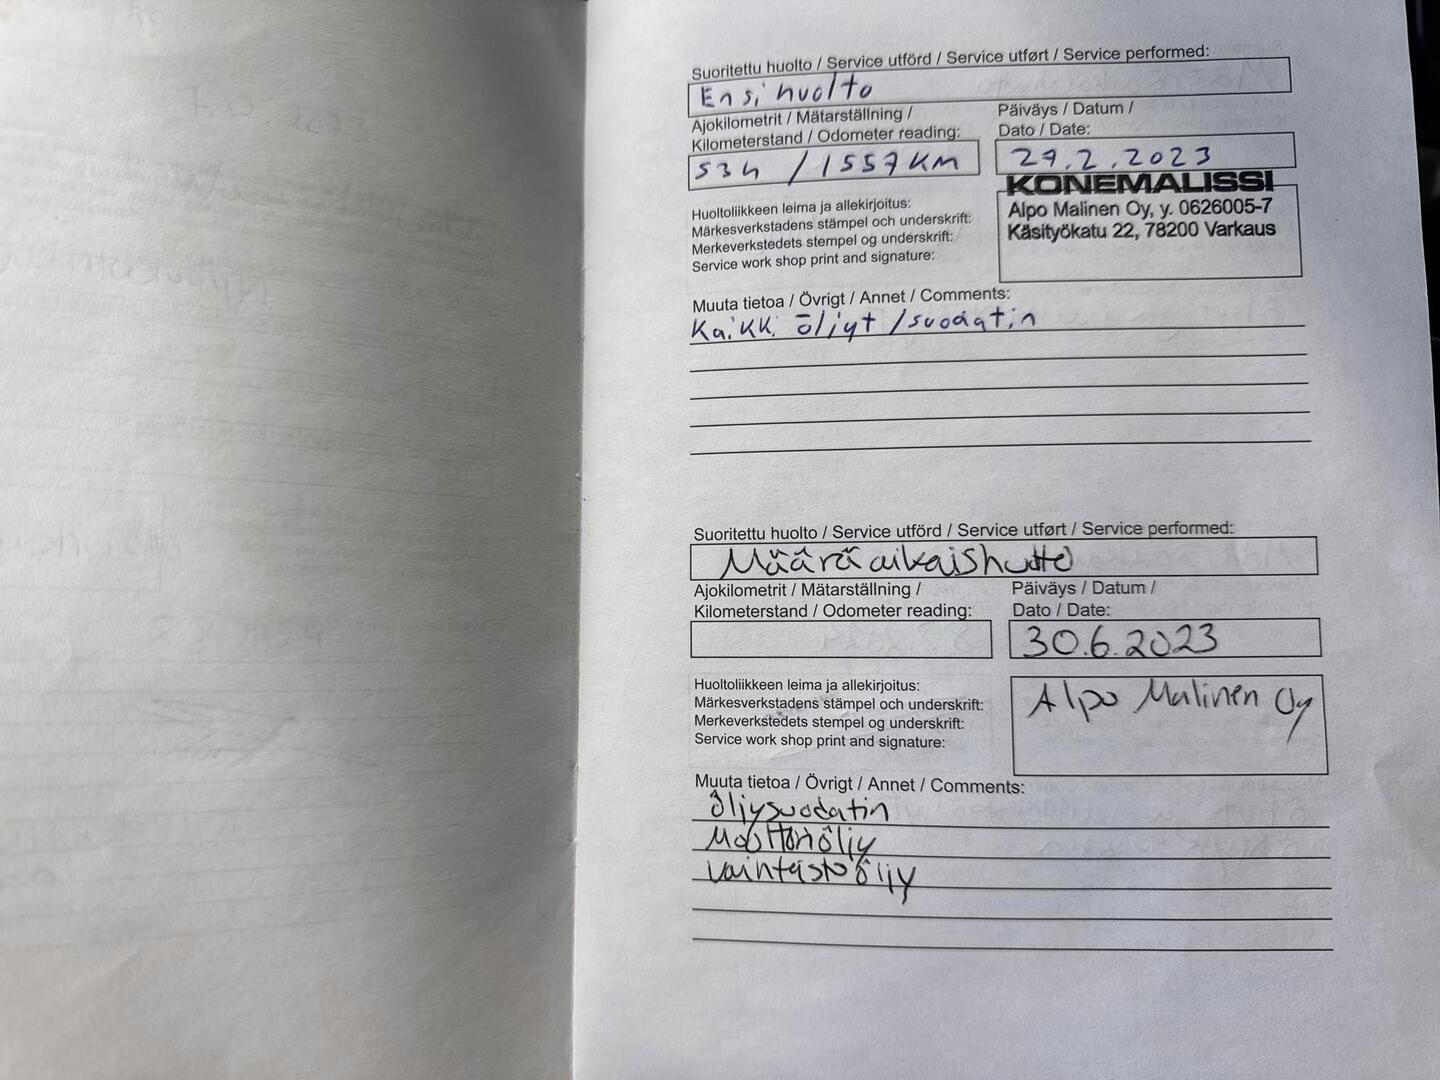 Suoritettu huolto / Service utförd / Service utført / Service performed:
Ensihuolto
Ajokilometrit / Mätarställning /
Kilometerstand / Odometer reading:
53h / 1557KM
Päiväys / Datum /
Dato / Date:
27.2.2023
KONEMALISSI
Alpo Malinen Oy, y. 0626005-7
Käsityökatu 22, 78200 Varkaus
Huoltoliikkeen leima ja allekirjoitus:
Märkesverkstadens stämpel och underskrift:
Merkeverkstedets stempel og underskrift:
Service work shop print and signature:
Muuta tietoa / Övrigt / Annet / Comments:
Kaikki öljyt /suodatin
Suoritettu huolto / Service utförd / Service utført / Service performed:
Määräaikaishuolto
Ajokilometrit / Mätarställning /
Kilometerstand / Odometer reading:
Päiväys / Datum /
Dato / Date:
30.6.2023
Huoltoliikkeen leima ja allekirjoitus:
Märkesverkstadens stämpel och underskrift:
Merkeverkstedets stempel og underskrift:
Service work shop print and signature:
Alpo Malinen Oy
Muuta tietoa / Övrigt / Annet / Comments:
Öljysuodatin
Moottoriöljy
Vaihteistoöljy